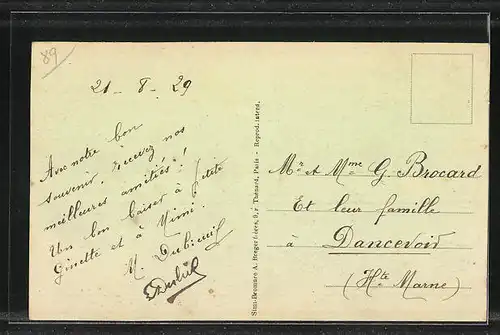 89
21 - 8 - 29
Avec notre bon
souvenir, recevez nos
meilleures amitiés !
Un bon baiser à Petite
Ginette et à Mimi.
M.
Simi-Bromure A. Breger frères, 9, r. Thénard, Paris - Reprod. interd.
Mr et Mme G. Brocard
Et leur famille
à
Dancevoir
(Hte Marne)